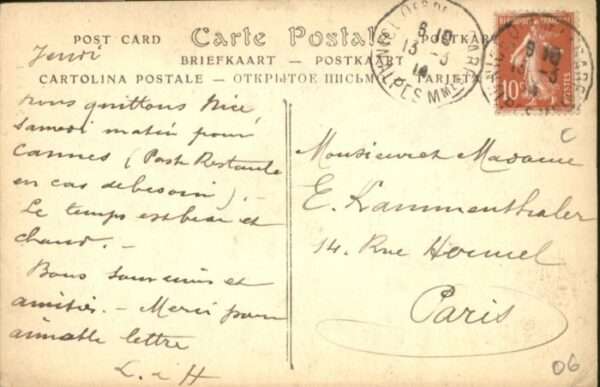 POST CARD Carte Postale POSTKARTE
BRIEFKAART — POSTKAART
CARTOLINA POSTALE — ОТКРЫТОЕ ПИСЬМО — TARJETA
Jeudi
nous quittons Nice
Samedi matin pour
Cannes (Poste Restante
en cas de besoin). —
Le temps est beau et
chaud. —
Bons souvenirs et
amitiés. — Merci pour
aimable lettre
L. & H
RÉPUBLIQUE FRANÇAISE
10
POSTES
ALPES MMES
Monsieur et Madame
E. Kammenthaler
14. Rue
Paris
06